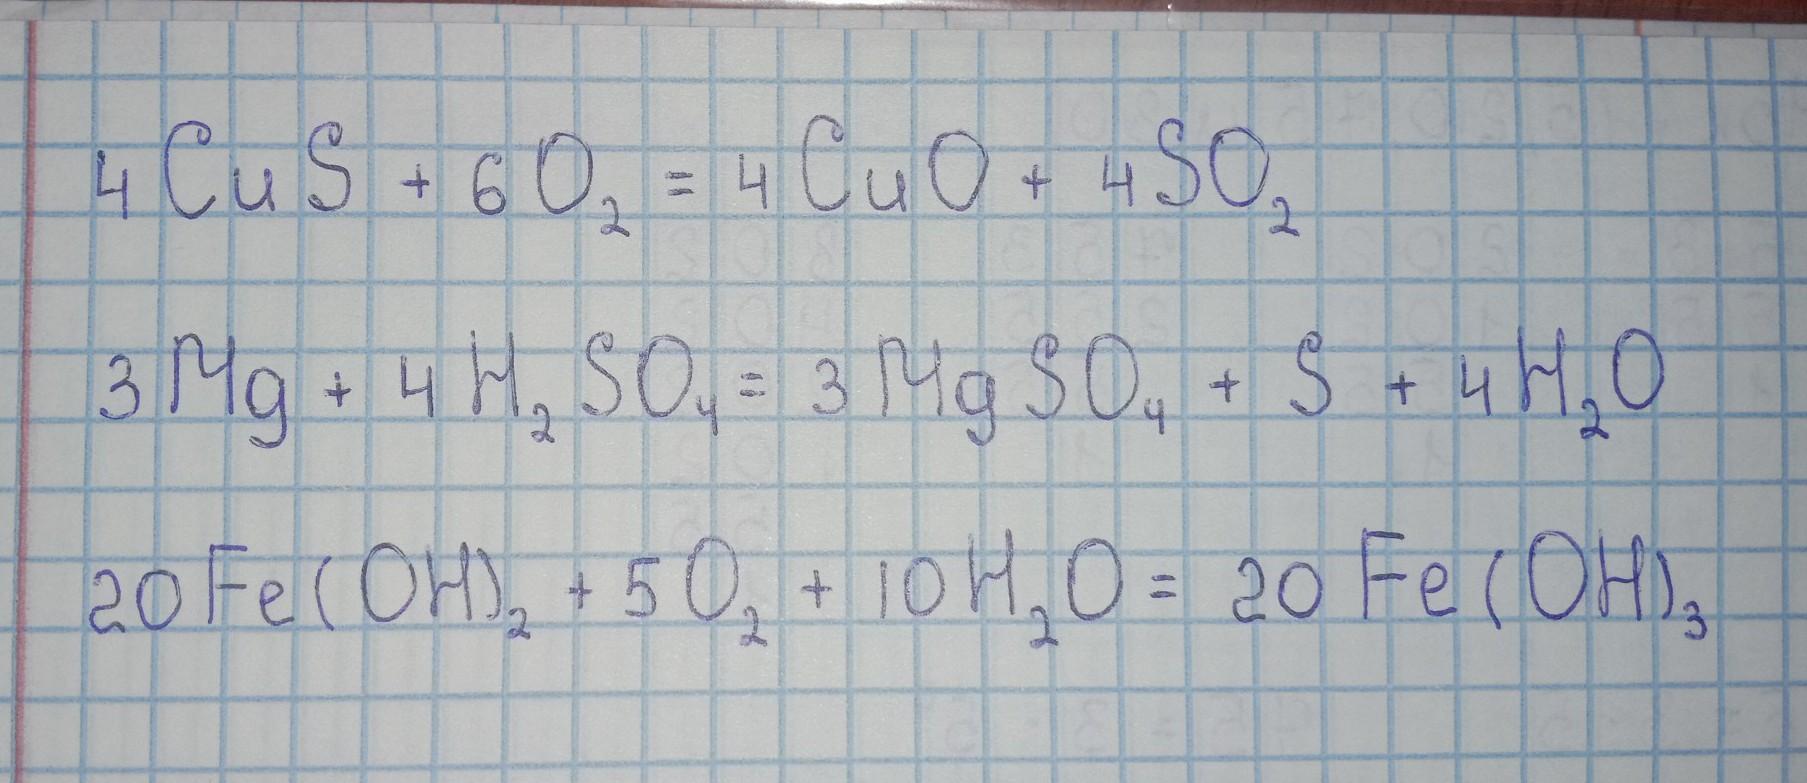 4CuS + 6O₂ = 4CuO + 4SO₂
3Mg + 4H₂SO₄ = 3MgSO₄ + S + 4H₂O
20Fe(OH)₂ + 5O₂ + 10H₂O = 20Fe(OH)₃